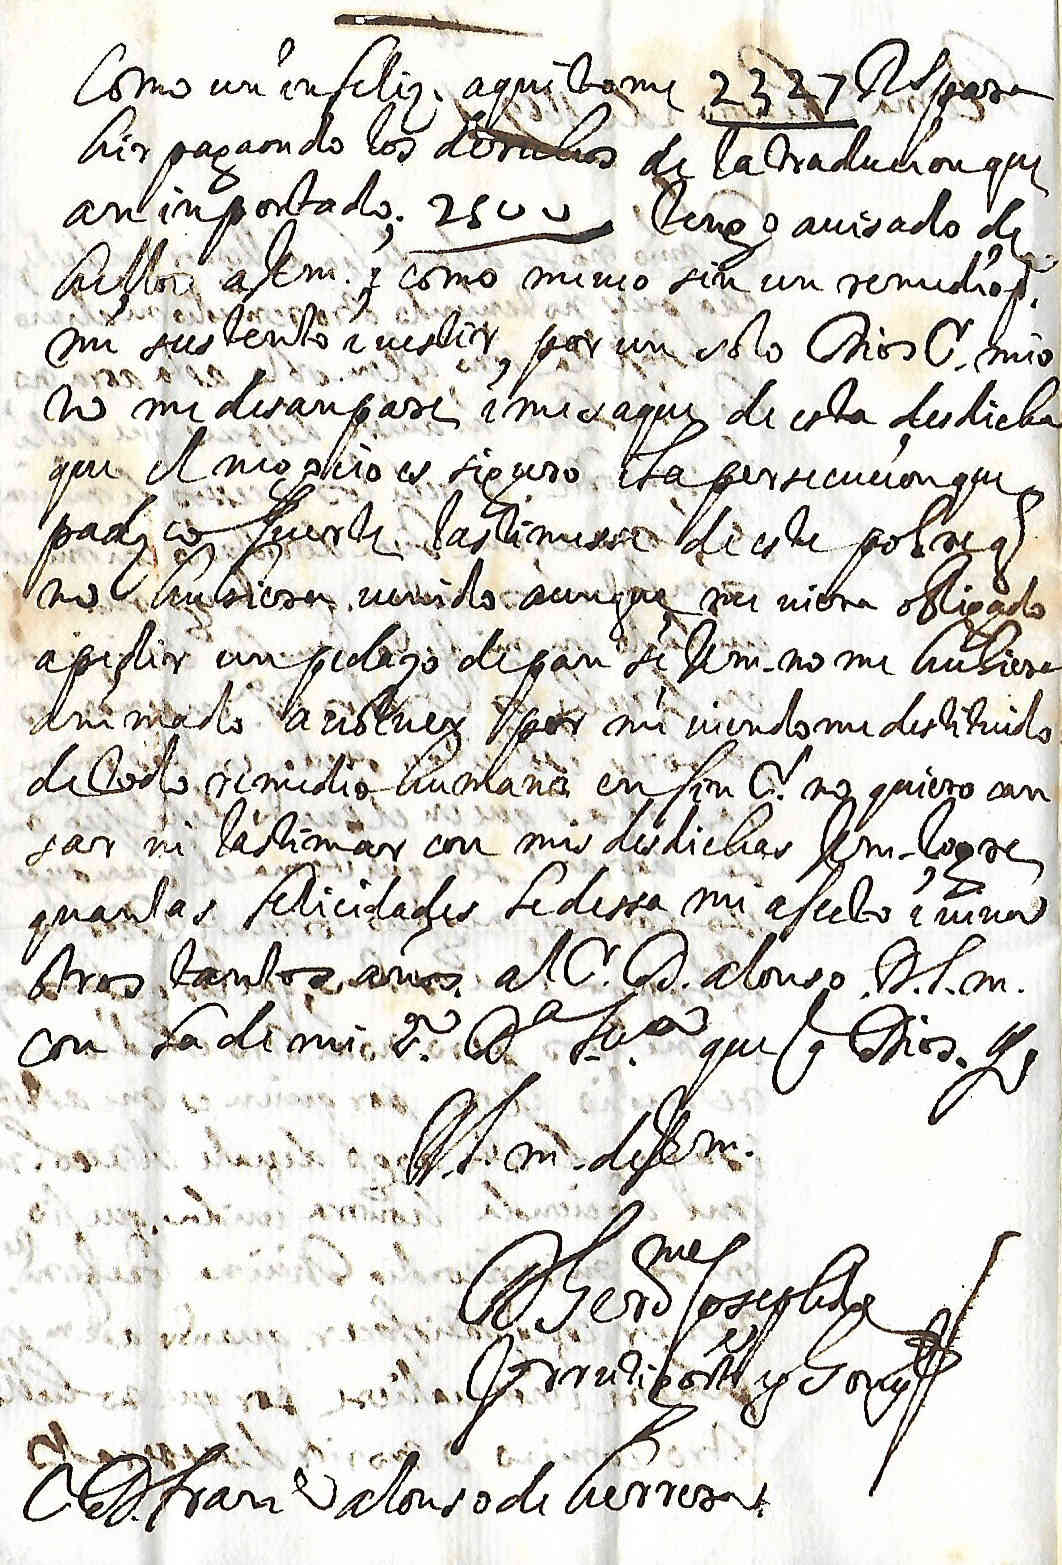 Como un infeliz. aqui tome 2327 Rs para
hir pagando los derechos de la traducion que
an inportado; 2500 tengo auisado de
ello a Vm. i como me ueo sin un remedio p.
mi sustento i uestir, por un solo Dios S. mio
no me desanpare i me saque de esta desdicha
que el negocio es siguro i la persecucion que
padezco fuerte lastimesse de este pobre q
no hubiera uenido aunque me uiera obligado
a pedir un pedazo de pan si Vm. no me hubiera
animado a uoluer por mi uiendome destituido
de todo remedio humano en fin S. no quiero can
sar ni lastimar con mis desdichas Vm. logre
quantas felicidades le dessea mi afecto i uiua
otros tantos años. al S. D. alonso B. l. m.
con la de mi S.ra D.a que g Dios.
B. l. m. de Vm.
Joseph de
y
S. D. Fran.co alonso de herrera